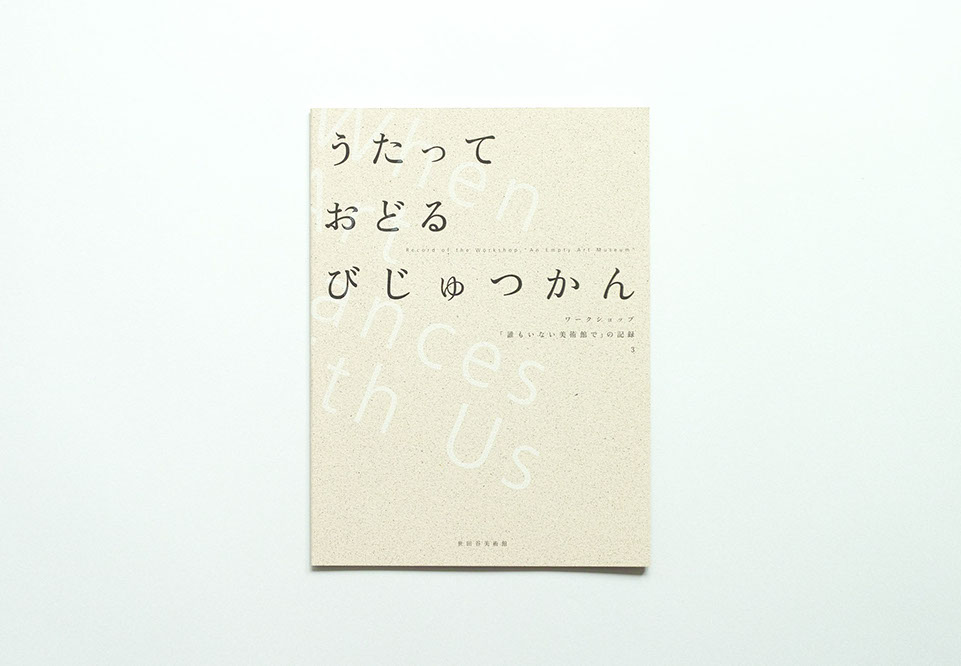 うたって
おどる
Record of the Workshop, "An Empty Art Museum"
びじゅつかん
ワークショップ
「誰もいない美術館で」の記録
3
When
Art
ances
th Us
世田谷美術館